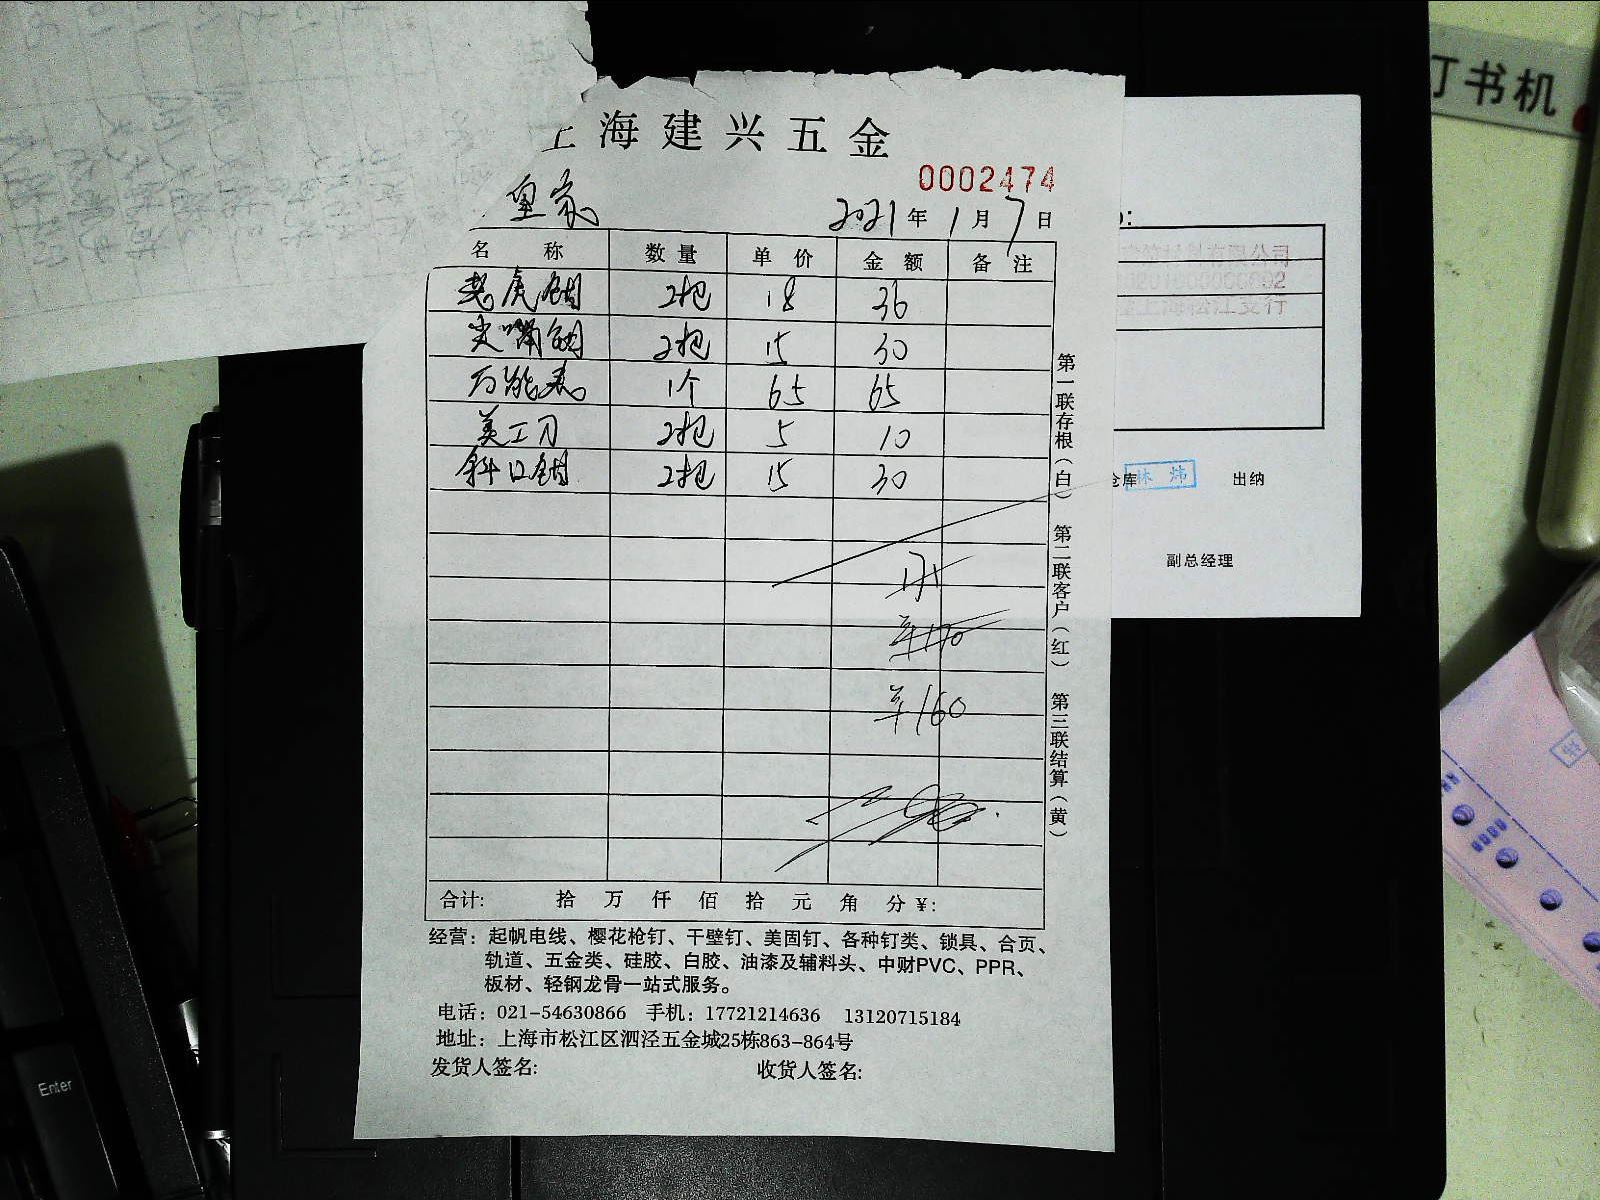 上海建兴五金
0002474
皇家
2021年1月7日
名 称 数量 单价 金额 备注
老虎钳 2把 18 36
尖嘴钳 2把 15 30
万能表 1个 65 65
美工刀 2把 5 10
斜口钳 2把 15 30
171
¥170
¥160
合计: 拾 万 仟 佰 拾 元 角 分¥:
经营：起帆电线、樱花枪钉、干壁钉、美固钉、各种钉类、锁具、合页、
轨道、五金类、硅胶、白胶、油漆及辅料头、中财PVC、PPR、
板材、轻钢龙骨一站式服务。
电话：021-54630866 手机：17721214636 13120715184
地址：上海市松江区泗泾五金城25栋863-864号
发货人签名: 收货人签名:
第一联存根（白） 第二联客户（红） 第三联结算（黄）
仓库 林炜 出纳
副总经理
订书机
Enter